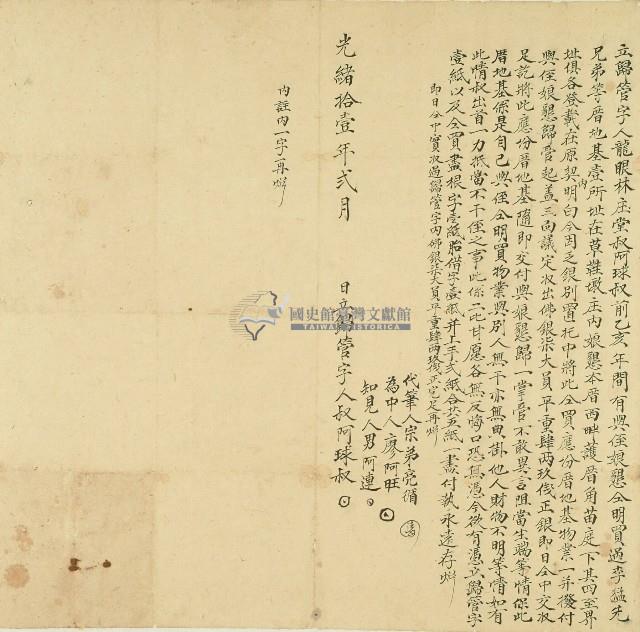 立歸管字人龍眼林庄堂叔阿球叔前乙亥年間有與侄娘懇仝明買過李猛先
兄弟等厝地基壹所址在草鞋墩庄內娘懇本厝西畔護厝角苗庭下其四至界
址俱各登載在原契內明白今因乏銀別置托中將此仝買應份厝地基物業一并發付
與侄娘懇歸管起盖三面議定收出佛銀柒大員平重肆兩玖錢正銀即日仝中交收
足訖將此應份厝地基隨即交付與娘懇歸一掌管不敢異言阻當生端等情保此
厝地基係是自己與侄仝明買物業與別人無干亦無毘掛他人財物不明等情如有
此情叔出首一力抵當不干侄之事此係二比甘愿各無反悔口恐無憑今欲有憑立歸管字
壹紙以及仝買盡根字壹紙胎借字壹紙并上手弍紙合共五紙一齊付執永遠存炤
即日仝中實收過歸管字內佛銀柒大員平重肆兩玖錢正完足再炤
代筆人宗弟亮銷
為中人廖阿旺
知見人男阿連
光緒拾壹年弍月 日立歸管字人叔阿球叔
內註內一字再炤
國史館臺灣文獻館
TAIWAN HISTORICA